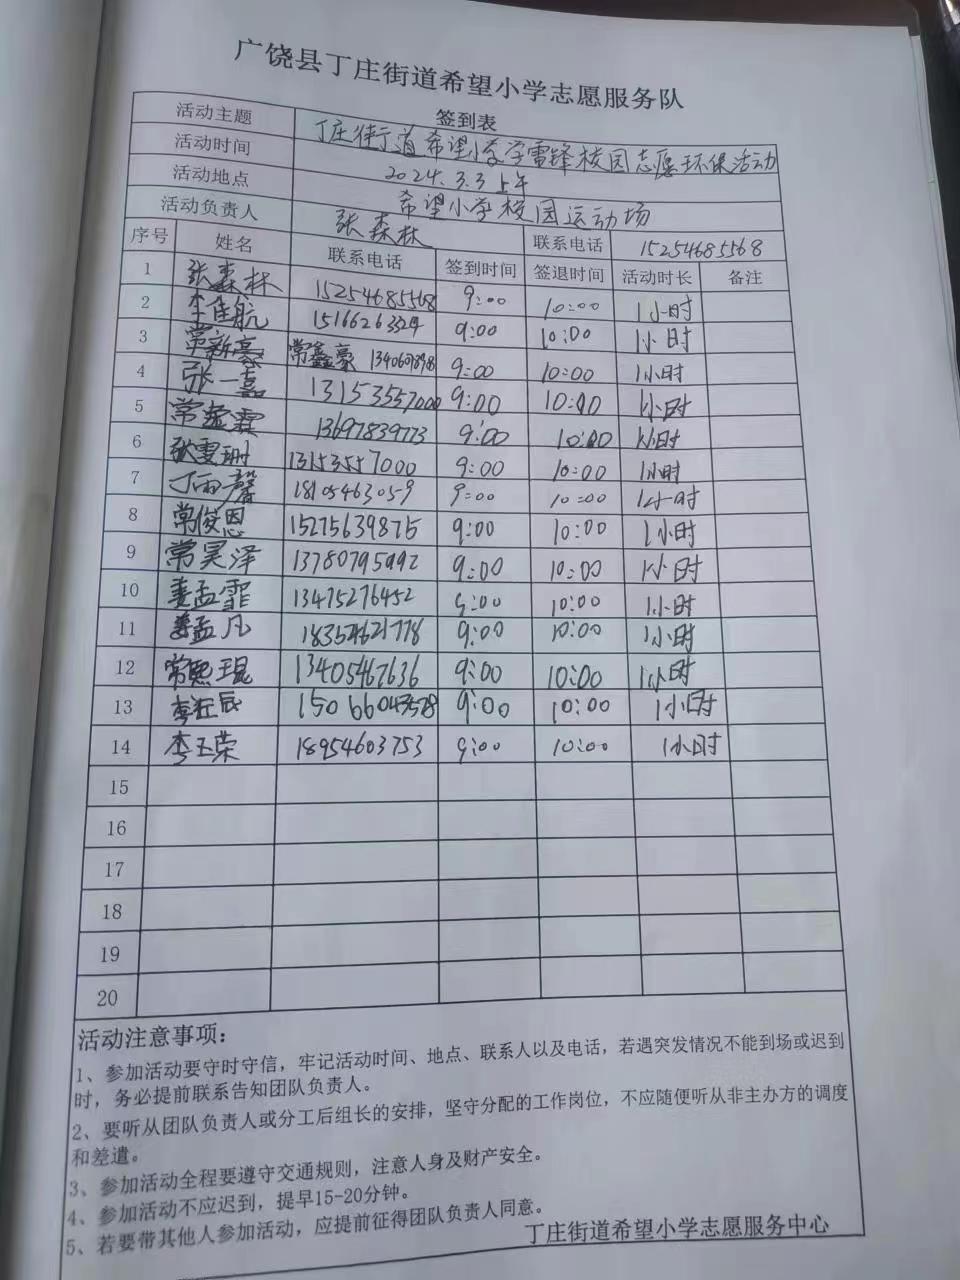 广饶县丁庄街道希望小学志愿服务队
签到表
活动主题 丁庄街道希望小学学雷锋校园志愿环保活动
活动时间 2024.3.3上午
活动地点 希望小学校园运动场
活动负责人 张森林 联系电话 15254685568
序号 姓名 联系电话 签到时间 签退时间 活动时长 备注
1 张森林 15254685568 9:00 10:00 1小时
2 李佳航 15166263324 9:00 10:00 1小时
3 常新豪 常鑫豪 9:00 10:00 1小时
4 张一嘉 13153557000 9:00 10:00 1小时
5 常孟霖 13697839773 9:00 10:00 1小时
6 张雯珊 13153557000 9:00 10:00 1小时
7 丁雨馨 18105463059 9:00 10:00 1小时
8 常俊恩 15275639875 9:00 10:00 1小时
9 常昊泽 13780795992 9:00 10:00 1小时
10 姜孟霏 13475276452 9:00 10:00 1小时
11 姜孟凡 18354621778 9:00 10:00 1小时
12 常熙琨 13405467636 9:00 10:00 1小时
13 9:00 10:00 1小时
14 李玉荣 18954603753 9:00 10:00 1小时
15
16
17
18
19
20
活动注意事项：
1、参加活动要守时守信，牢记活动时间、地点、联系人以及电话，若遇突发情况不能到场或迟到
时，务必提前联系告知团队负责人。
2、要听从团队负责人或分工后组长的安排，坚守分配的工作岗位，不应随便听从非主办方的调度
和差遣。
3、参加活动全程要遵守交通规则，注意人身及财产安全。
4、参加活动不应迟到，提早15-20分钟。
5、若要带其他人参加活动，应提前征得团队负责人同意。
丁庄街道希望小学志愿服务中心